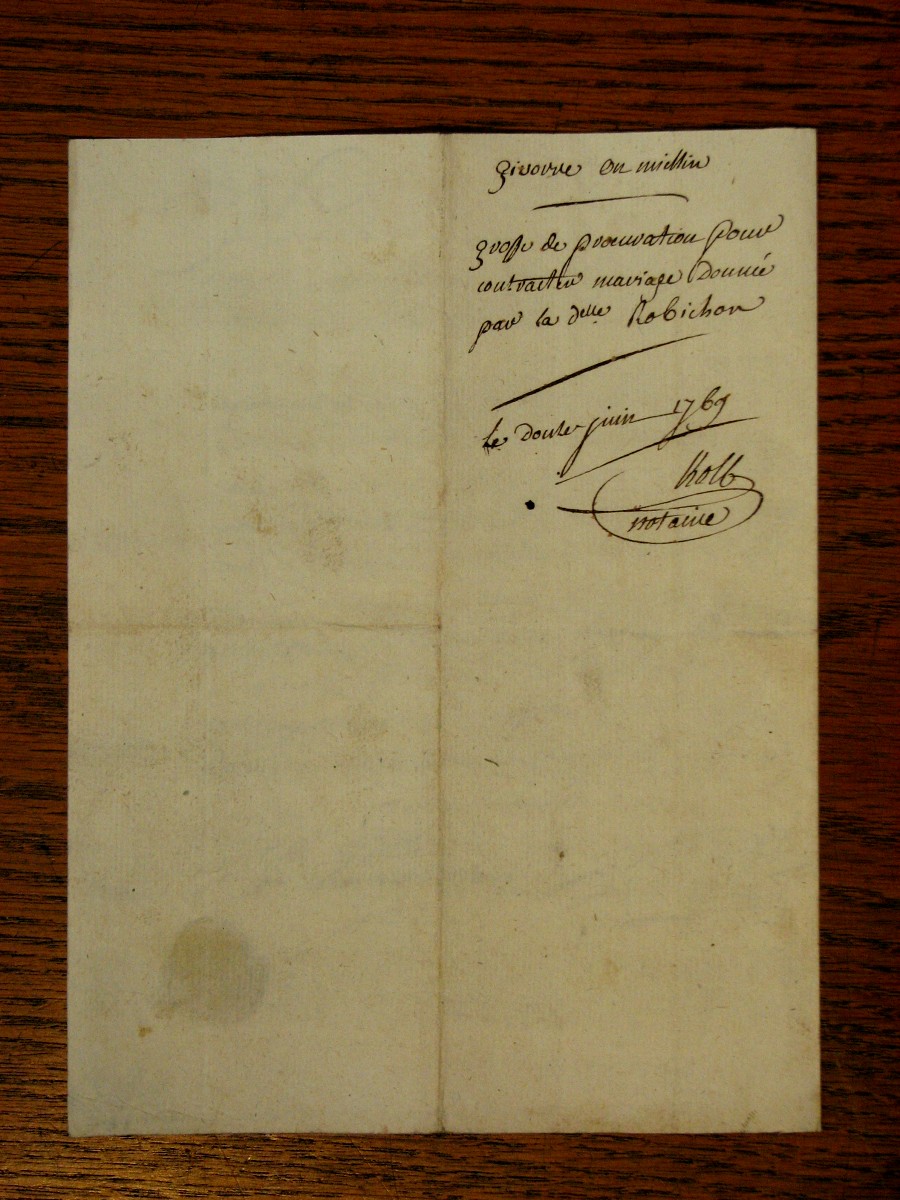 givorre en millin
grosse de procuration pour
contracter mariage Donnée
par la delle Robichon
le douze juin 1769
Kolb
notaire